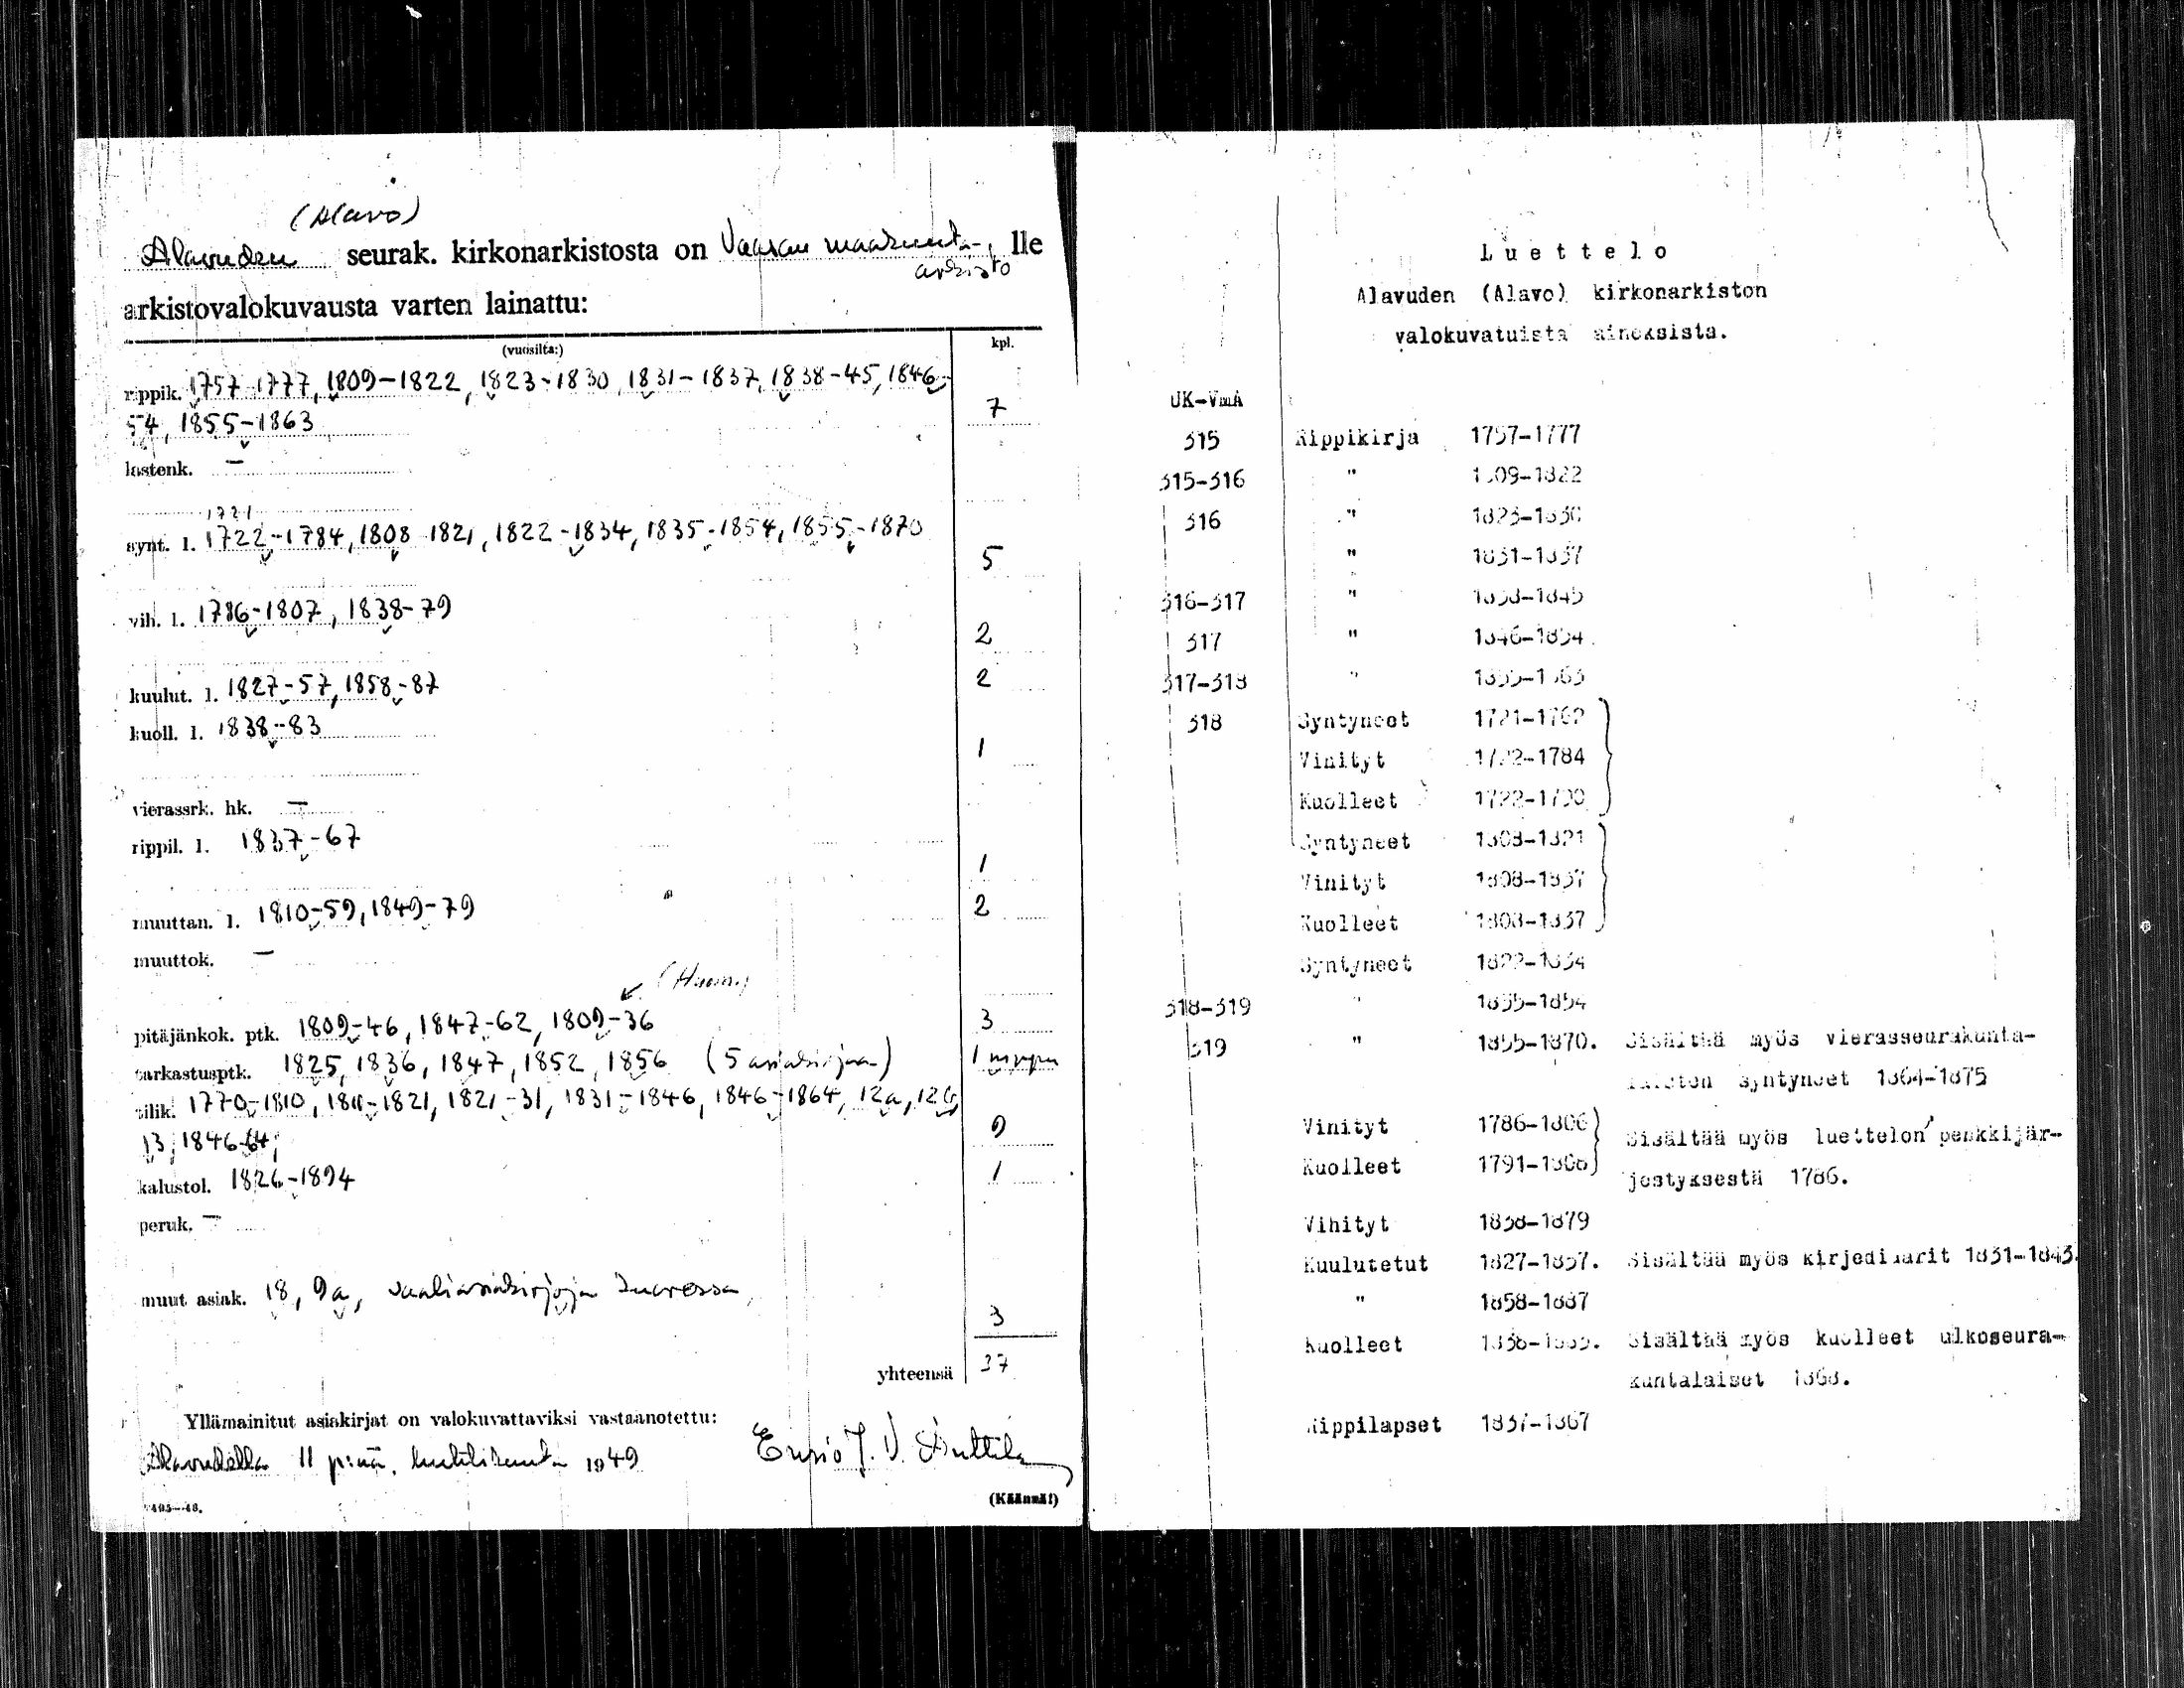 (Alavo)
Alavuden seurak. kirkonarkistosta on Vaasan maakunta- lle
arkisto
arkistovalokuvausta varten lainattu:
(vuosilta:) kpl.
rippik. 1757-1777, 1809-1822, 1823-1830, 1831-1837, 1838-45, 1846-
54, 1855-1863 7
lastenk. —
1721
synt. l. 1722-1784, 1808-1821, 1822-1834, 1835-1854, 1855-1870
5
vih. l. 1786-1807, 1838-79
2
kuulut. l. 1827-57, 1858-87 2
kuoll. l. 1838-83
1
vierassrk. hk. —
rippil. l. 1837-67
1
muuttan. l. 1810-59, 1849-79 2
muuttok. —
pitäjänkok. ptk. 1809-46, 1847-62, 1809-36 3
tarkastusptk. 1825, 1836, 1847, 1852, 1856 (5 asiakirjaa) 1 nippu
tilik. 1770-1810, 1811-1821, 1821-31, 1831-1846, 1846-1864, 12a, 12b,
13, 1846-64; 9
kalustol. 1826-1894 1
peruk. —
muut asiak. 18, 9a, vaaliasiakirjoja
3
yhteensä 37
Yllämainitut asiakirjat on valokuvattaviksi vastaanotettu:
Alavudella 11 p:nä huhtikuuta 1949
(Käännä!)
Luettelo
Alavuden (Alavo) kirkonarkiston
valokuvatuista aineksista.
UK-VmA
315 Rippikirja 1757-1777
315-316 " 1809-1822
316 " 1823-1830
" 1831-1837
316-317 " 1838-1845
317 " 1846-1854
317-318 " 1855-1863
318 Syntyneet 1721-1762
Vihityt 1722-1784
Kuolleet 1722-1790
Syntyneet 1808-1821
Vihityt 1808-1837
Kuolleet 1808-1837
Syntyneet 1822-1834
318-319 " 1835-1854
319 " 1855-1870. Sisältää myös vierasseurakunta-
laisten syntyneet 1864-1875
Vihityt 1786-1806
Kuolleet 1791-1806
Sisältää myös luettelon penkkijär-
jestyksestä 1786.
Vihityt 1838-1879
Kuulutetut 1827-1857. Sisältää myös kirjediaarit 1831-1843.
" 1858-1887
Kuolleet 1838-1883. Sisältää myös kuolleet ulkoseura-
kuntalaiset 1868.
Rippilapset 1837-1867